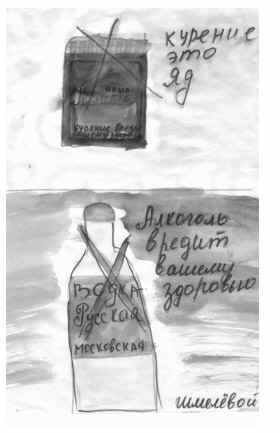 курение
это
Яд
курение вредит
вашему здоровью
Алкоголь
вредит
вашему
здоровью
Водка
Русская
московская
Шмолёвой